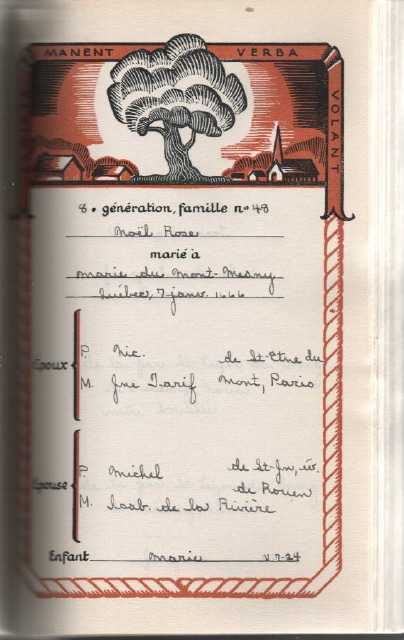 MANENT VERBA VOLANT
8e génération, famille no 48
Noël Rose
marié à
Marie du Mont-Mesny
Québec, 7 janv. 1666
Époux
P. Nic. de St-Etne du
M. Jne Tarif Mont, Paris
Épouse
P. Michel de St-Jn, év.
M. Isab. de la Rivière de Rouen
Enfant Marie V.7-24